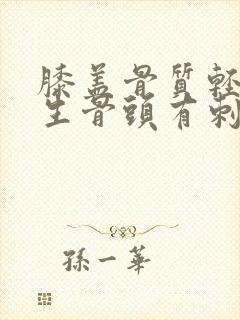 膝盖骨質軽
生骨頭有刺
孫一華